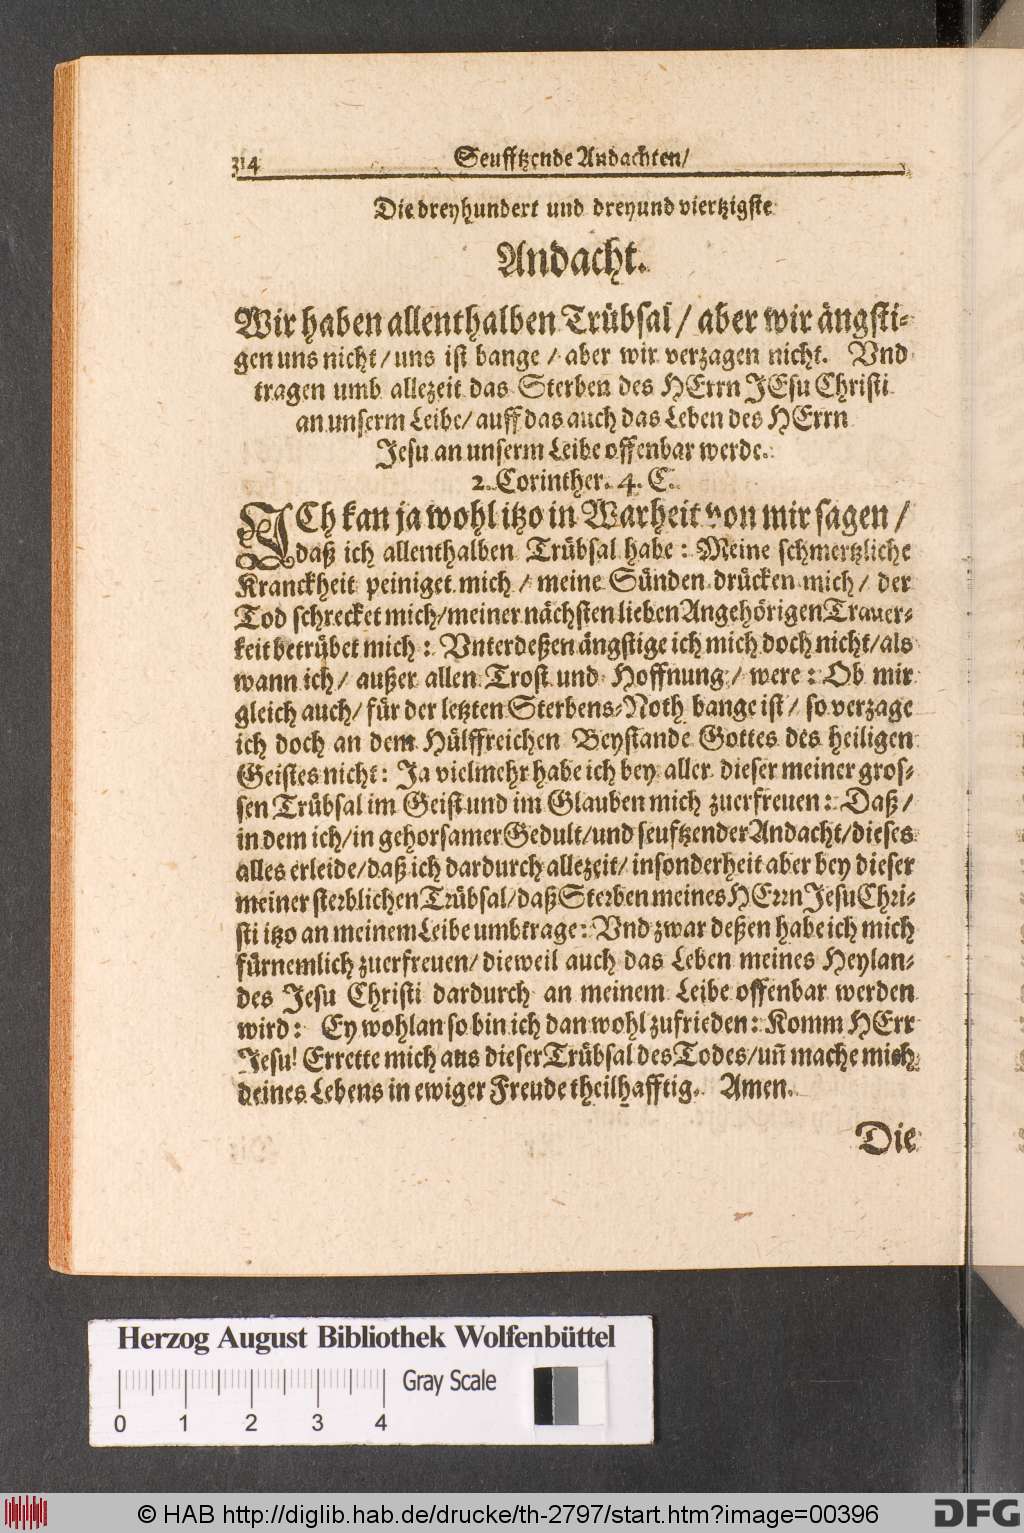 314
Seufftzende Andachten/
Die dreyhundert und dreyund viertzigste
Andacht.
Wir haben allenthalben Trübsal / aber wir ängsti-
gen uns nicht/ uns ist bange / aber wir verzagen nicht. Vnd
tragen umb allezeit das Sterben des HErrn JEsu Christi
an unserm Leibe/ auff das auch das Leben des HErrn
Jesu an unserm Leibe offenbar werde.
2. Corinther. 4. C.
ICh kan ja wohl itzo in Warheit von mir sagen /
daß ich allenthalben Trübsal habe: Meine schmertzliche
Kranckheit peiniget mich / meine Sünden drücken mich / der
Tod schrecket mich/meiner nächsten lieben Angehörigen Trauer-
keit betrübet mich : Vnterdeßen ängstige ich mich doch nicht/als
wann ich/ außer allen Trost und Hoffnung / were : Ob mir
gleich auch/ für der letzten Sterbens-Noth bange ist / so verzage
ich doch an dem Hülffreichen Beystande Gottes des heiligen
Geistes nicht: Ja vielmehr habe ich bey aller dieser meiner gros-
sen Trübsal im Geist und im Glauben mich zuerfreuen: Daß /
in dem ich/in gehorsamer Gedult/und seuftzender Andacht/dieses
alles erleide/daß ich dardurch allezeit/ insonderheit aber bey dieser
meiner sterblichen Trübsal/daß Sterben meines HErrn Jesu Chri-
sti itzo an meinem Leibe umbtrage: Vnd zwar deßen habe ich mich
fürnemlich zuerfreuen/ dieweil auch das Leben meines Heylan-
des Jesu Christi dardurch an meinem Leibe offenbar werden
wird: Ey wohlan so bin ich dan wohl zufrieden: Komm HErr
Jesu! Errette mich aus dieser Trübsal des Todes/un̄ mache mich
deines Lebens in ewiger Freude theilhafftig. Amen.
Die
Herzog August Bibliothek Wolfenbüttel
Gray Scale
0 1 2 3 4
© HAB http://diglib.hab.de/drucke/th-2797/start.htm?image=00396
DFG